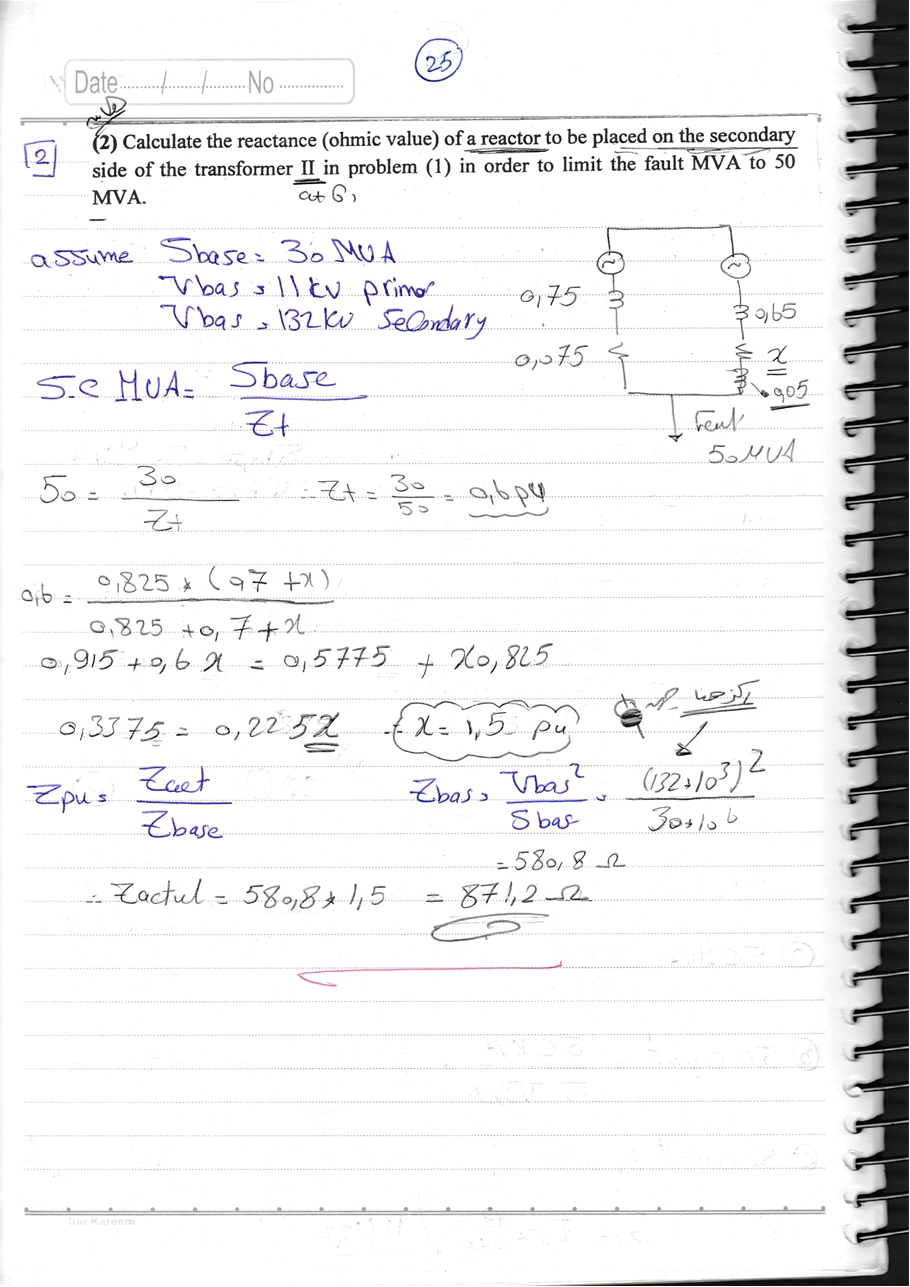 25
Date ........./......../......... No ................
2
(2) Calculate the reactance (ohmic value) of a reactor to be placed on the secondary
side of the transformer II in problem (1) in order to limit the fault MVA to 50
MVA.
at G1
assume Sbase = 30 MVA
Vbas = 11 kv primar
Vbas = 132 kv Secondary
0,75
0,65
0,075
x
0,05
50 MVA
S.C MVA = Sbase / Zt
50 = 30 / Zt ∴ Zt = 30/50 = 0,6 pu
0,6 = 0,825 * (0,7 + x) / 0,825 + 0,7 + x
0,915 + 0,6 x = 0,5775 + x0,825
0,3375 = 0,225x x = 1,5 pu
Zpu = Zact / Zbase Zbas = Vbas² / Sbas = (132*10³)² / 30*10⁶
= 580,8 Ω
∴ Zactul = 580,8 * 1,5 = 871,2 Ω
Dar Kareem